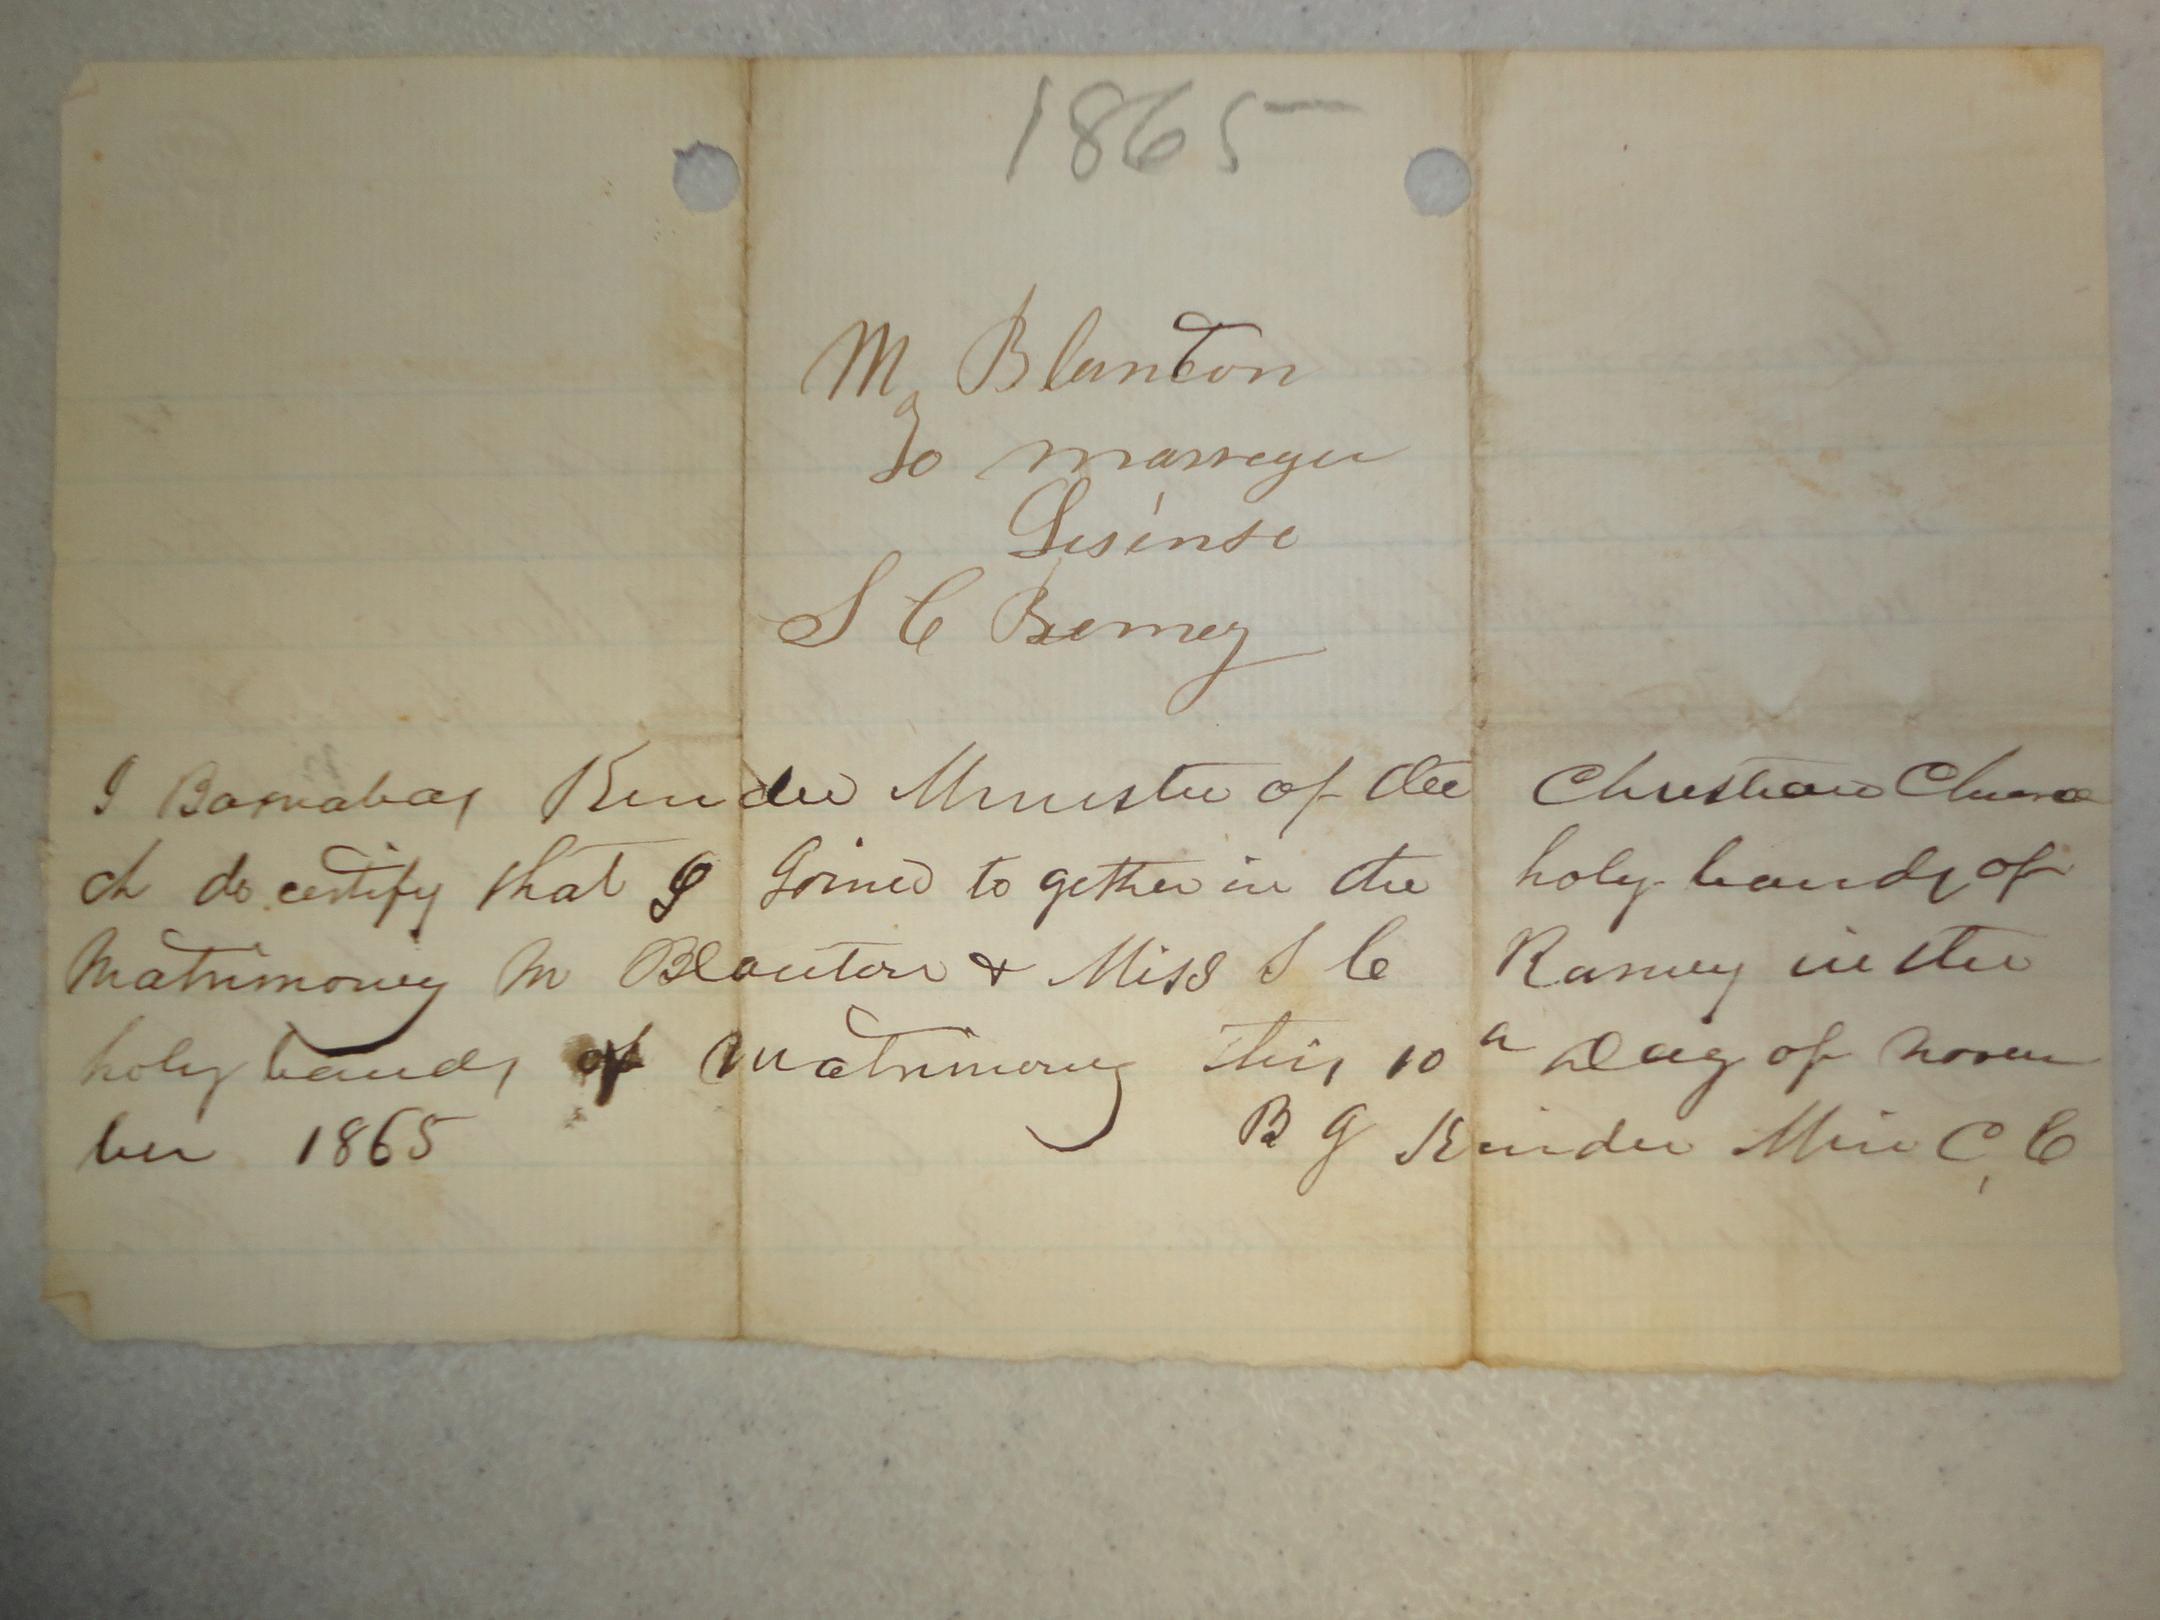 1865
M Blanton
To marregee
Lisinse
S C Remey
I Barnabas Kinder Minister of the Christian Chur
ch do certify that I Joined to gether in the holy bands of
Matrimoney M Blanton & Miss S C Ramey in the
holy bands of Matrimony this 10 Day of novem
ber 1865 B G Kinder Min C, C